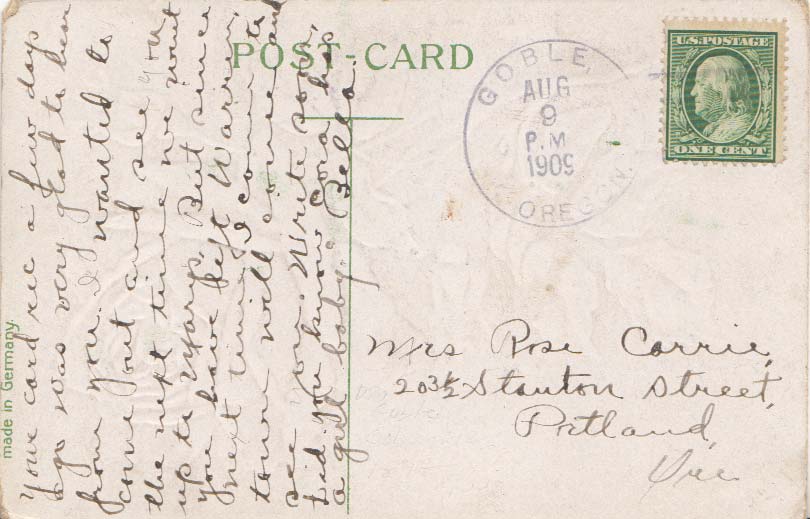 POST-CARD
GOBLE,
AUG
9
P.M
1909
OREGON.
U.S. POSTAGE
ONE CENT
made in Germany.
Your card rec a few days
ago was very glad to hear
from you. I wanted to
come out and see you
the next time we went
up to Marys. But since
you have left Warren,
next time I come to
town will come and
see you. Write soon,
Did you know Cora has
a girl baby. Bella.
Mrs Rose Carrie,
203½ Stanton Street,
Portland,
Ore